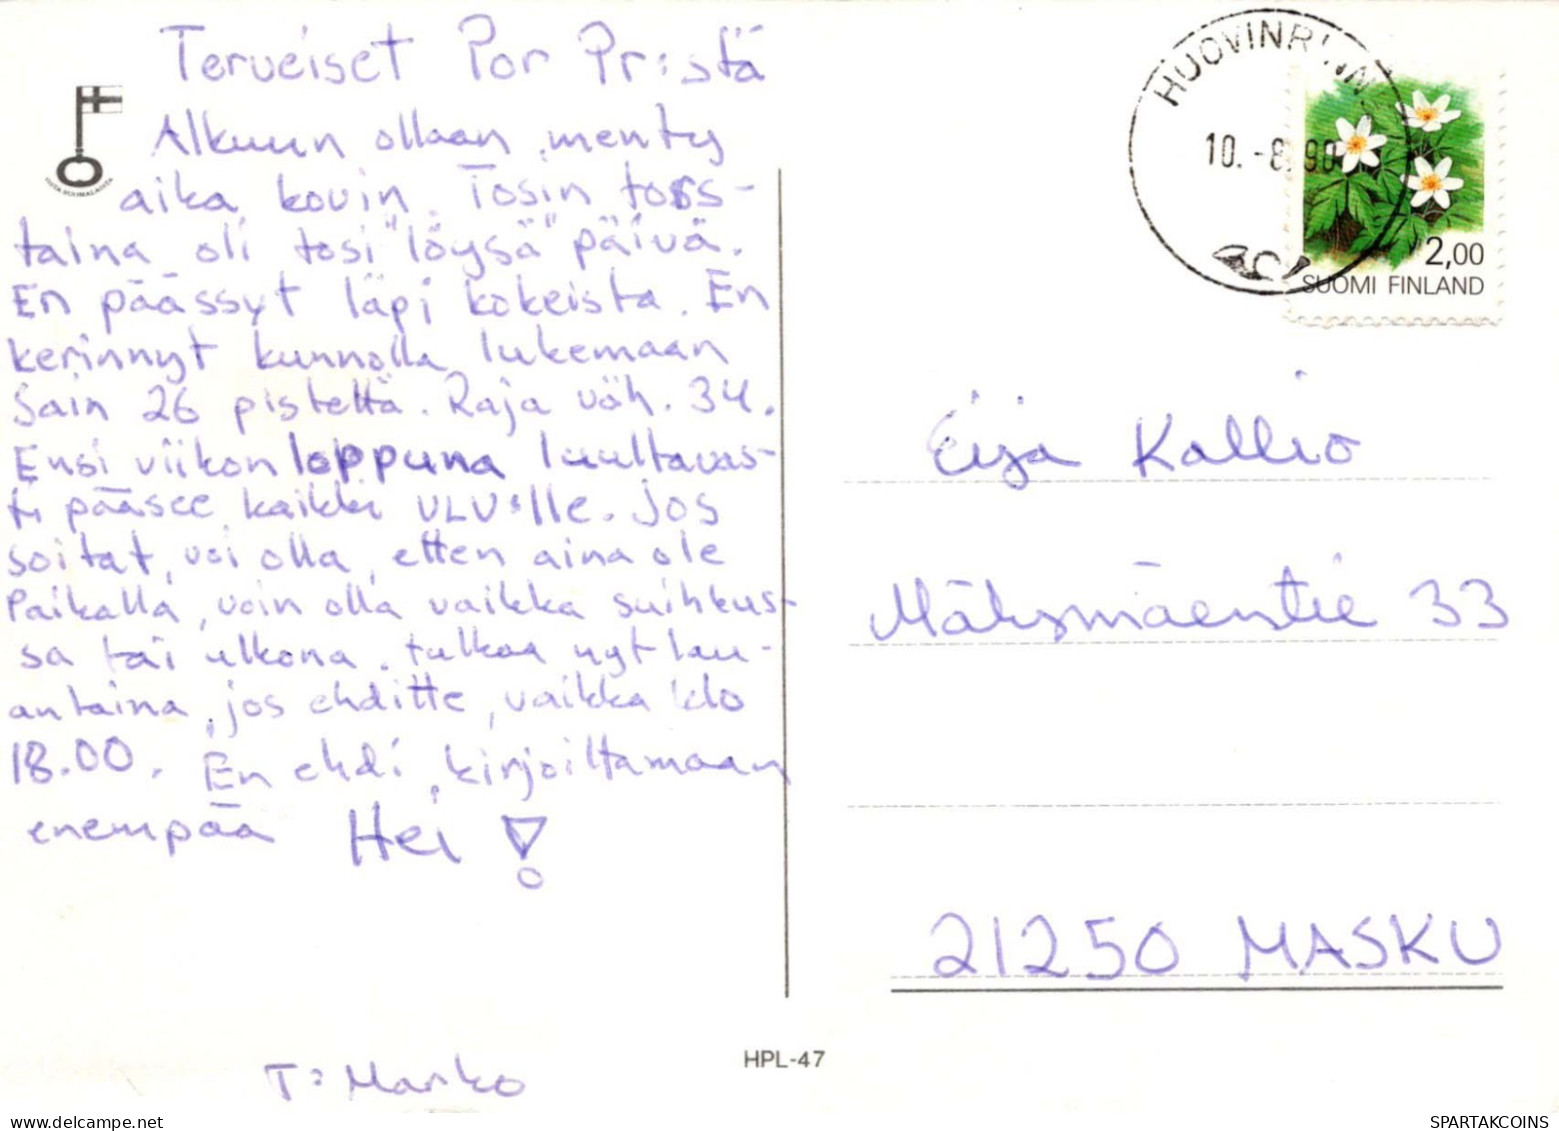 Terveiset Por Pr:stä
Alkuun ollaan menty
aika kovin. Tosin tors-
taina oli tosi "löysä" päivä.
En päässyt läpi kokeista. En
kerinnyt kunnolla lukemaan
Sain 26 pistettä. Raja väh. 34.
Ensi viikon loppuna luultavas-
ti pääsee kaikki VLV:lle. Jos
soitat, voi olla, etten aina ole
Paikalla, voin olla vaikka suihkus-
sa tai ulkona. tulkaa nyt lau-
antaina, jos ehditte, vaikka klo
18.00. En ehdi kirjoittamaan
enempää Hei!
T: Marko
HPL-47
HUOVINRINN
10.-8.90
2,00
SUOMI FINLAND
Eija Kallio
33
21250 MASKU
SPARTAKCOINS